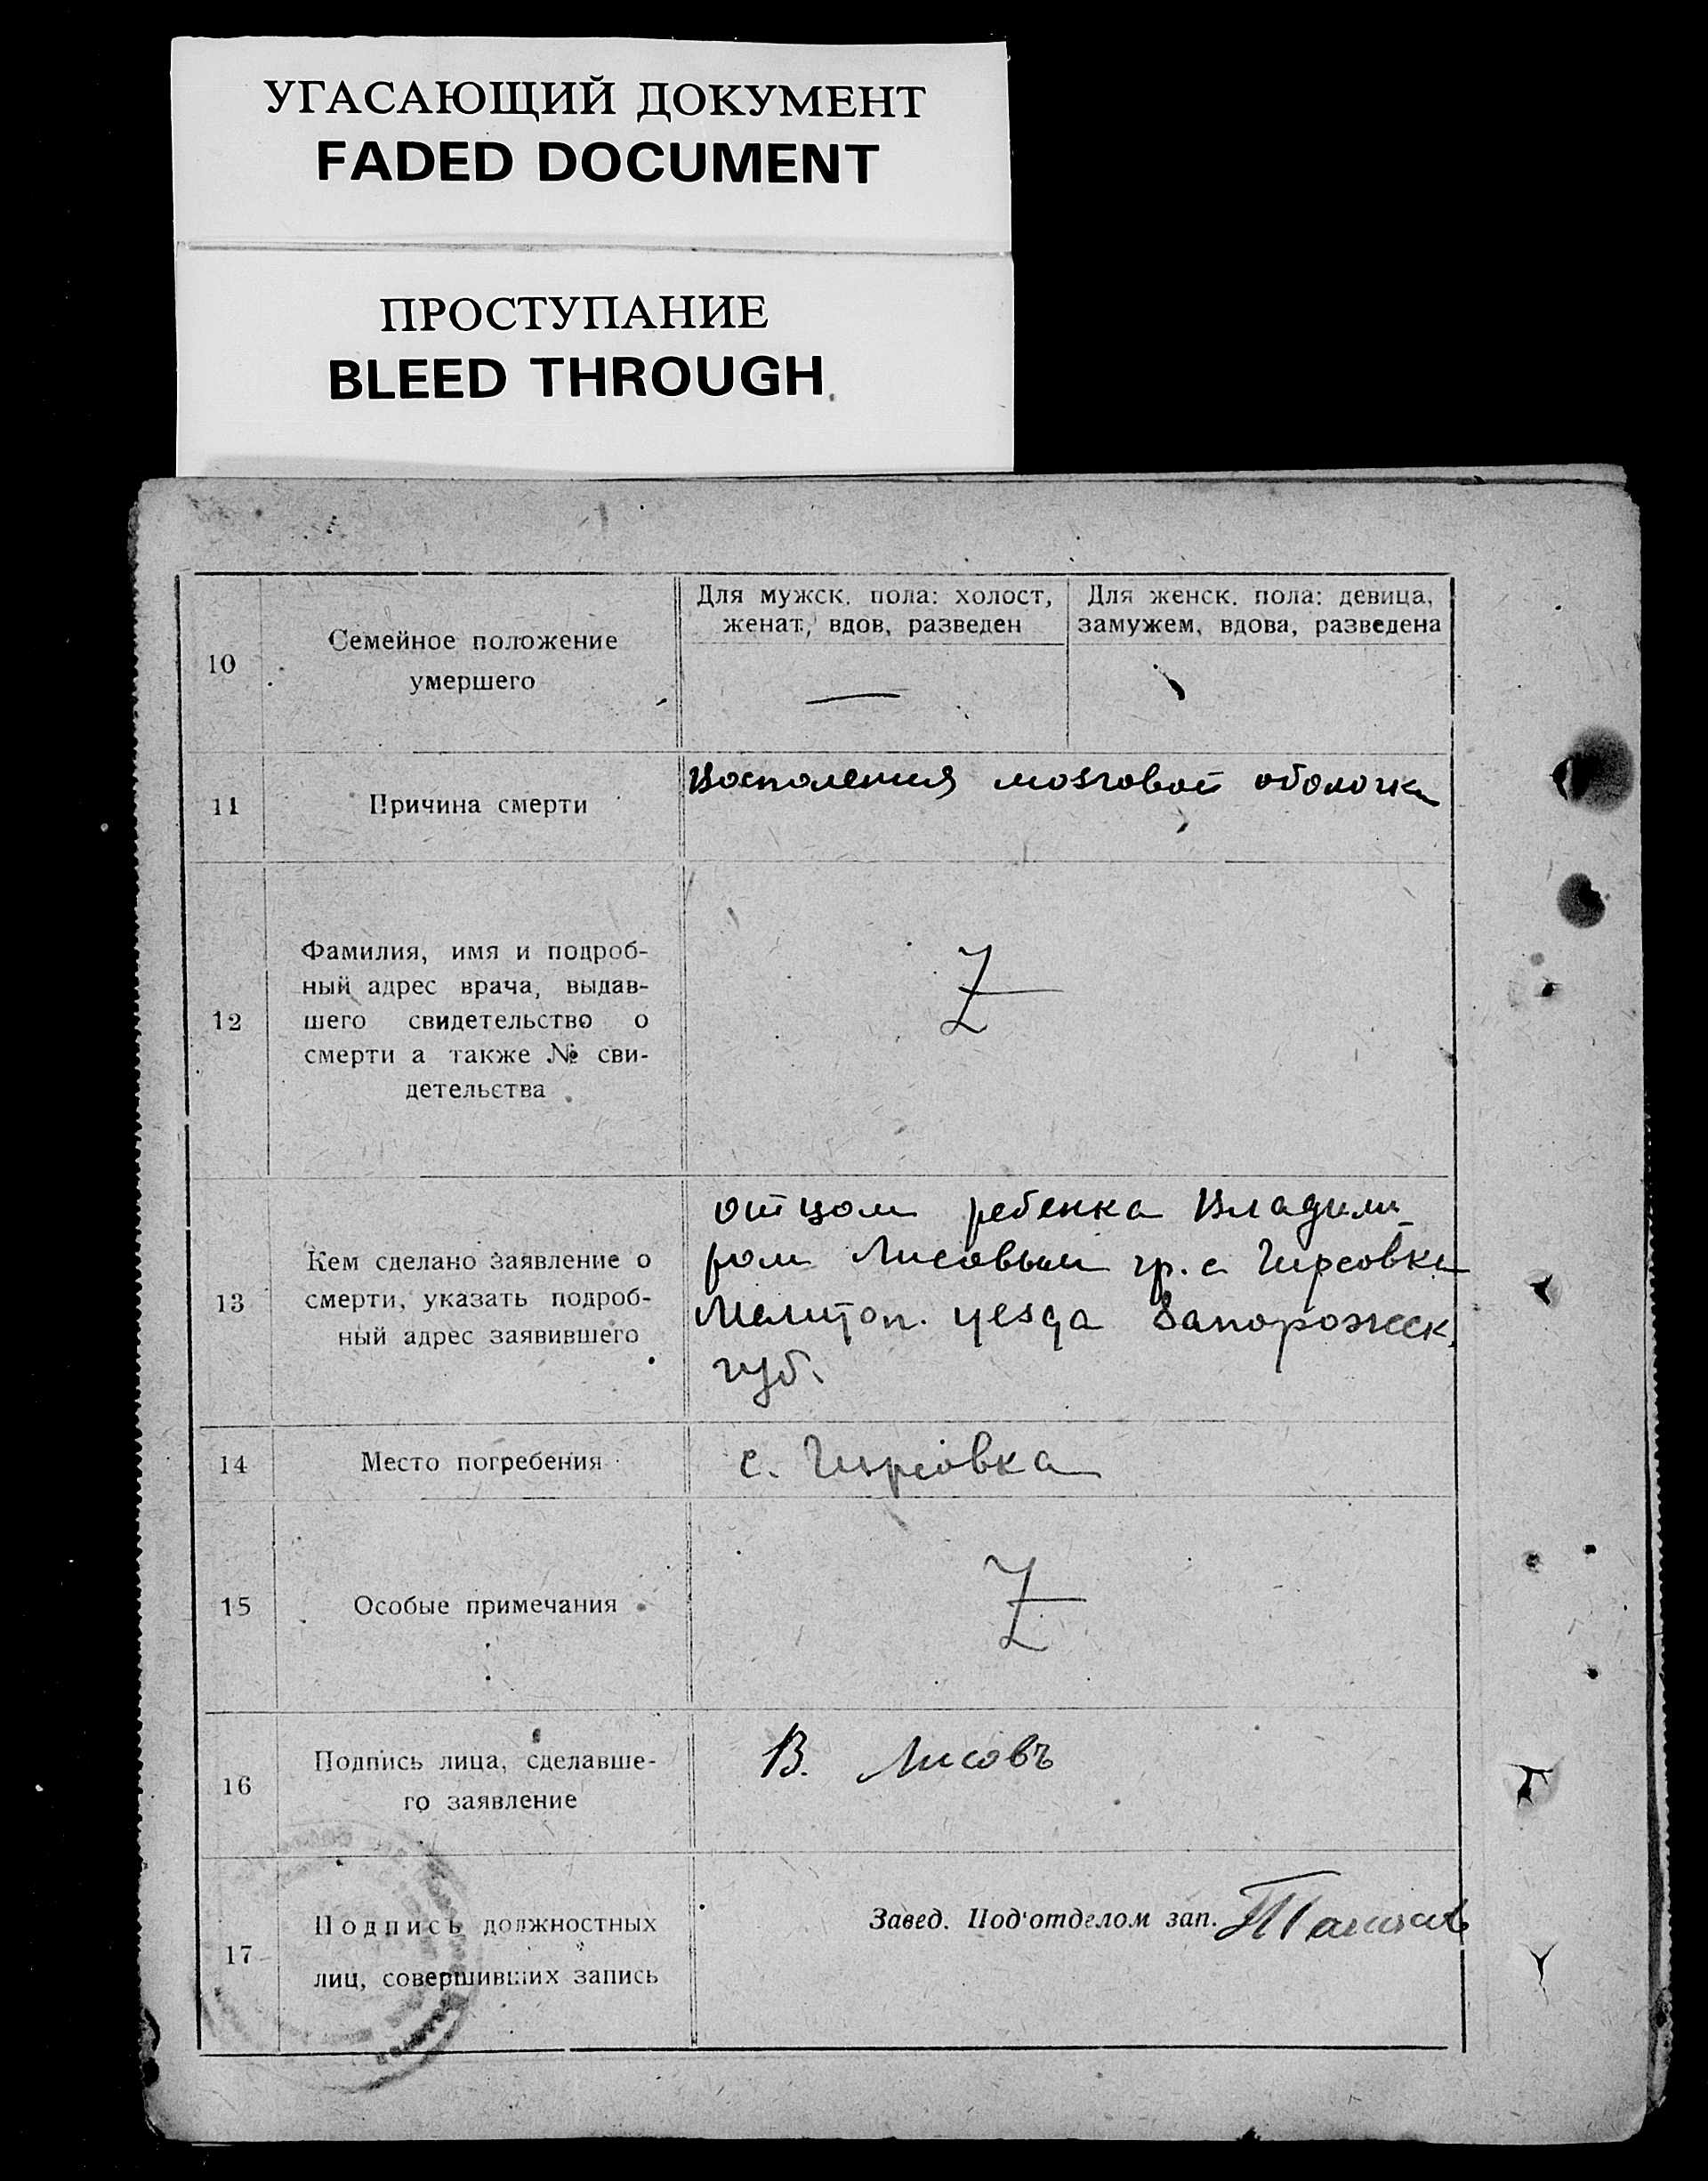 УГАСАЮЩИЙ ДОКУМЕНТ
FADED DOCUMENT
ПРОСТУПАНИЕ
BLEED THROUGH
10
Семейное положение
умершего
Для мужск. пола: холост,
женат, вдов, разведен
Для женск. пола: девица,
замужем, вдова, разведена
11
Причина смерти
Воспаления мозговой оболочки
12
Фамилия, имя и подроб-
ный адрес врача, выдав-
шего свидетельство о
смерти а также № сви-
детельства
Z
13
Кем сделано заявление о
смерти, указать подроб-
ный адрес заявившего
отцом ребенка Владими-
ром Лисовым гр. с. Гирсовки
Мелитоп. уезда Запорожск.
губ.
14
Место погребения
с. Гирсовка
15
Особые примечания
Z
16
Подпись лица, сделавше-
го заявление
В. Лисовъ
17
Подпись должностных
лиц, совершивших запись
Завед. Под'отделом зап.